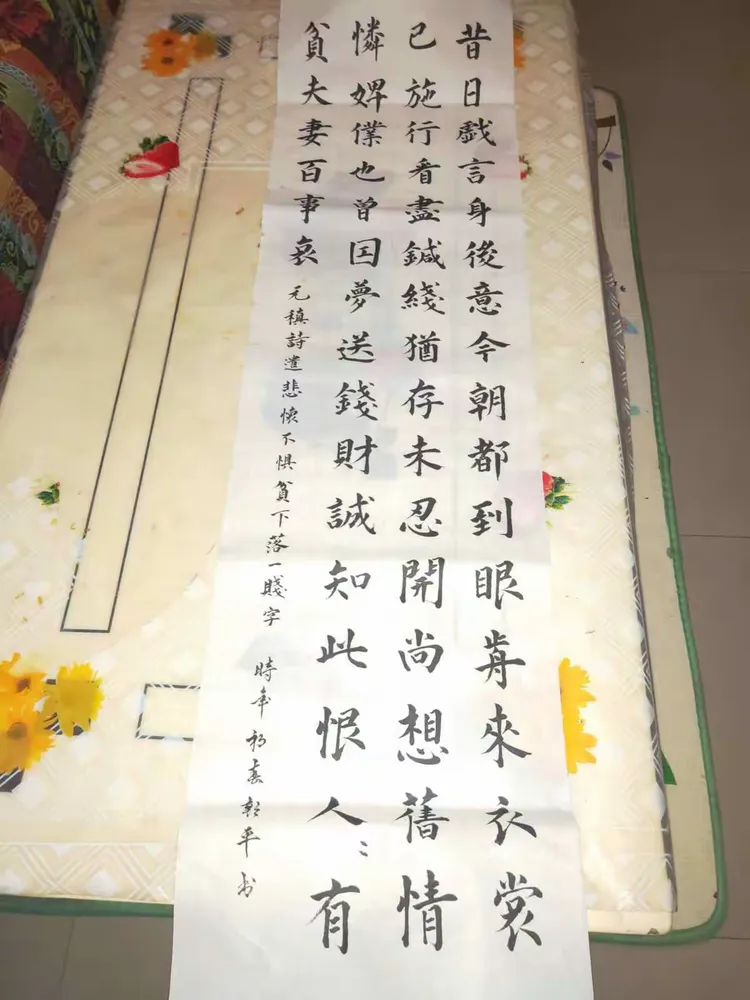 昔日戯言身後意今朝都到眼歬來衣裳
已施行看盡鍼綫猶存未忍開尚想舊情
憐婢僕也曾因夢送錢財誠知此恨人〻有
貧夫妻百事哀
元稹詩遣悲懷不懼貧下落一賤字 時年初春平书